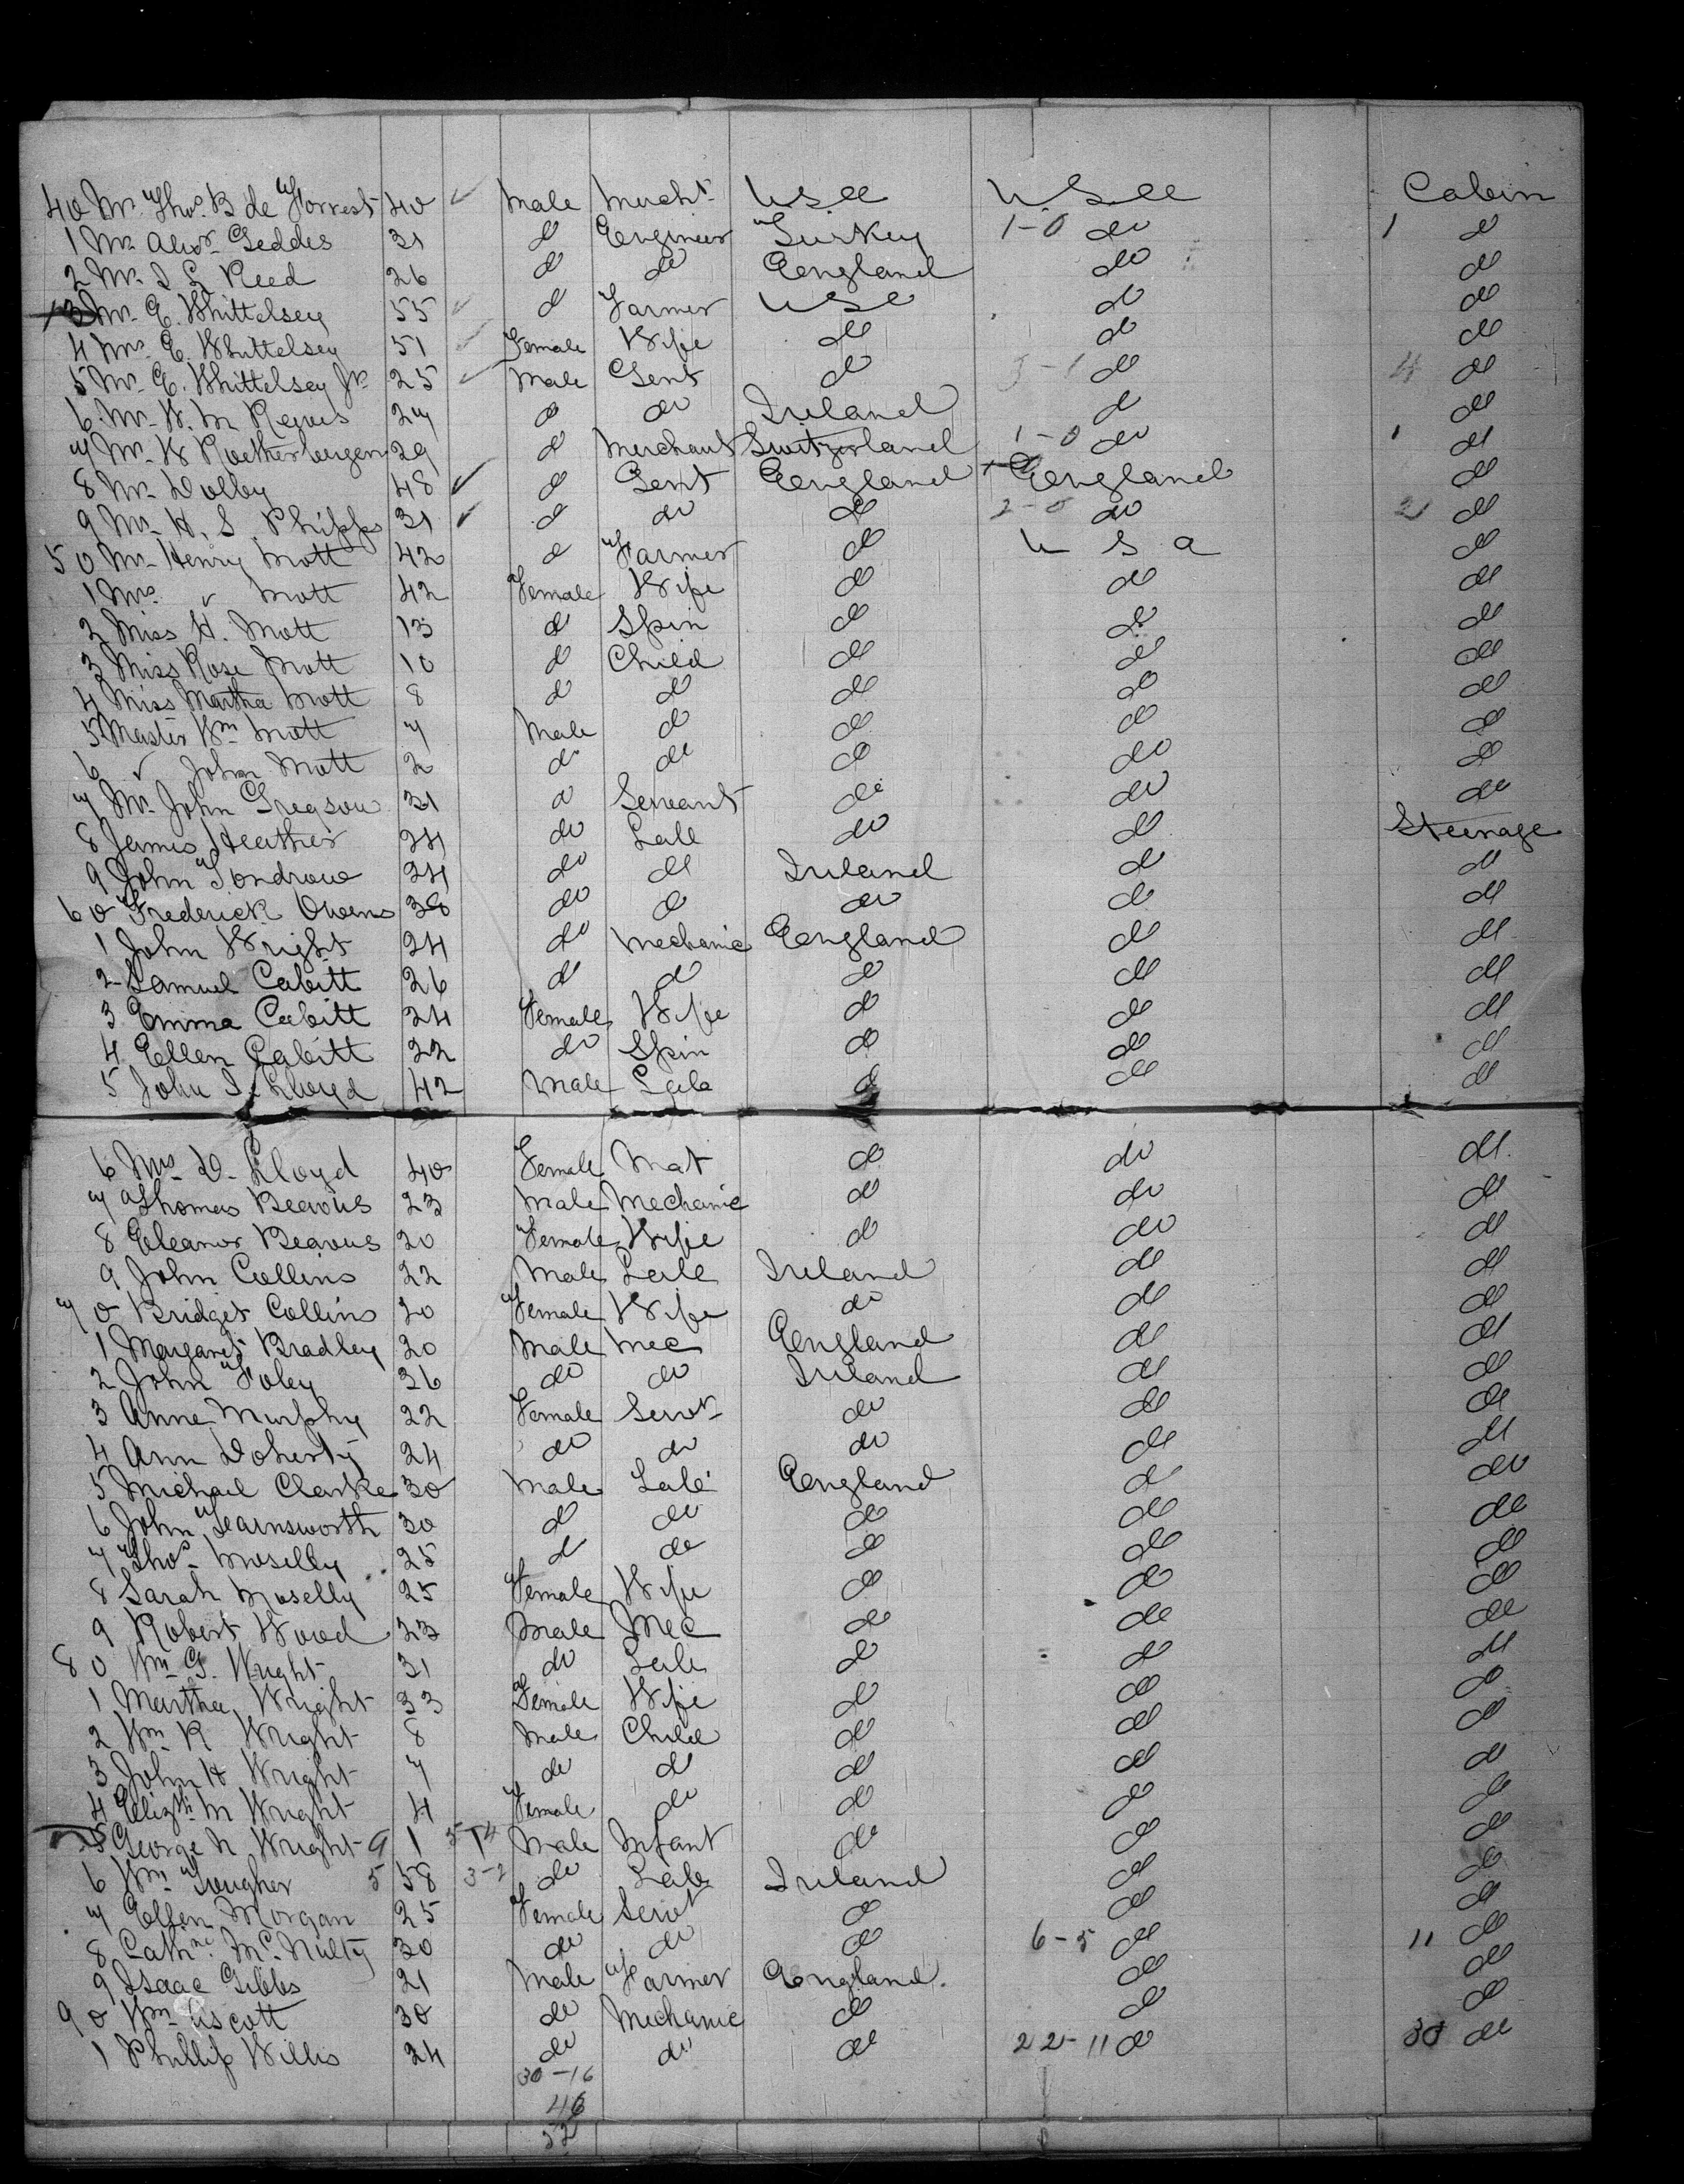 40 Mr. Thos. B de Forrest 40 Male Mercht U.S.A U.S.A Cabin
1 Mr. Alexr. Geddes 31 do Engineer Turkey 1-0 do 1 do
2 Mr. I L Reed 26 do do England do do
3 Mr. E. Whittelsey 55 do Farmer USA do do
4 Mrs. E. Whittelsey 51 Female Wife do do do
5 Mr. E. Whittelsey Jr. 25 Male Gent do 3-1 do 4 do
6 Mr. W. M 27 do do Ireland do do
7 Mr. W 29 do Merchant Switzerland 1-0 do 1 do
8 Mr. Dolby 48 do Gent England England do
9 Mr. H. S. Phipps 31 do do do 2-0 do 2 do
50 Mr. Henry Mott 42 do Farmer do U S A do
1 Mrs. " Mott 42 Female Wife do do do
2 Miss H. Mott 13 do Spin do do do
3 Miss Rose Mott 10 do Child do do do
4 Miss Martha Mott 8 do do do do do
5 Master Wm. Mott 7 Male do do do do
6 " John Mott 2 do do do do do
7 Mr. John Gregson 31 do Servant do do do
8 James Heather 24 do Lab do do Steerage
9 John 24 do do Ireland do do
60 Frederick Owens 38 do do do do do
1 John Wright 24 do Mechanic England do do
2 Samuel Cabitt 26 do do do do do
3 Emma Cabitt 24 Female Wife do do do
4 Ellen Cabitt 22 do Spin do do do
5 John I. Lloyd 42 Male Lab do do do
6 Mrs. D. Lloyd 40 Female Mat do do do
7 Thomas Beavus 23 Male Mechanic do do do
8 Eleanor Beavus 20 Female Wife do do do
9 John Collins 22 Male Lab Ireland do do
70 Bridget Collins 20 Female Wife do do do
1 Margaret Bradley 20 Male Mec England do do
2 John Foley 26 do do Ireland do do
3 Anne Murphy 22 Female Servt do do do
4 Ann Doherty 24 do do do do do
5 Michael Clarke 30 Male Lab England do do
6 John Fearnsworth 30 do do do do do
7 Thos. Moselly 25 do do do do do
8 Sarah Moselly 25 Female Wife do do do
9 Robert Wood 23 Male Mec do do do
80 Wm. G. Wright 31 do Lab do do do
1 Martha Wright 33 Female Wife do do do
2 Wm. R Wright 8 Male Child do do do
3 John H Wright 7 do do do do do
4 Elizth. M Wright 4 Female do do do do
5 George N Wright 9 1 Male Infant do do do
6 Wm. Tougher 5 58 3-2 do Lab Ireland do do
7 Ellen Morgan 25 Female Servt do do do
8 Cathne. McNulty 30 do do do 6-5 do 11 do
9 Isaac Gibbs 21 Male Farmer England do do
90 Wm. Ascott 30 do Mechanic do do do
1 Phillip Willis 24 do do do 22-11 do 30 do
30-16
46
52